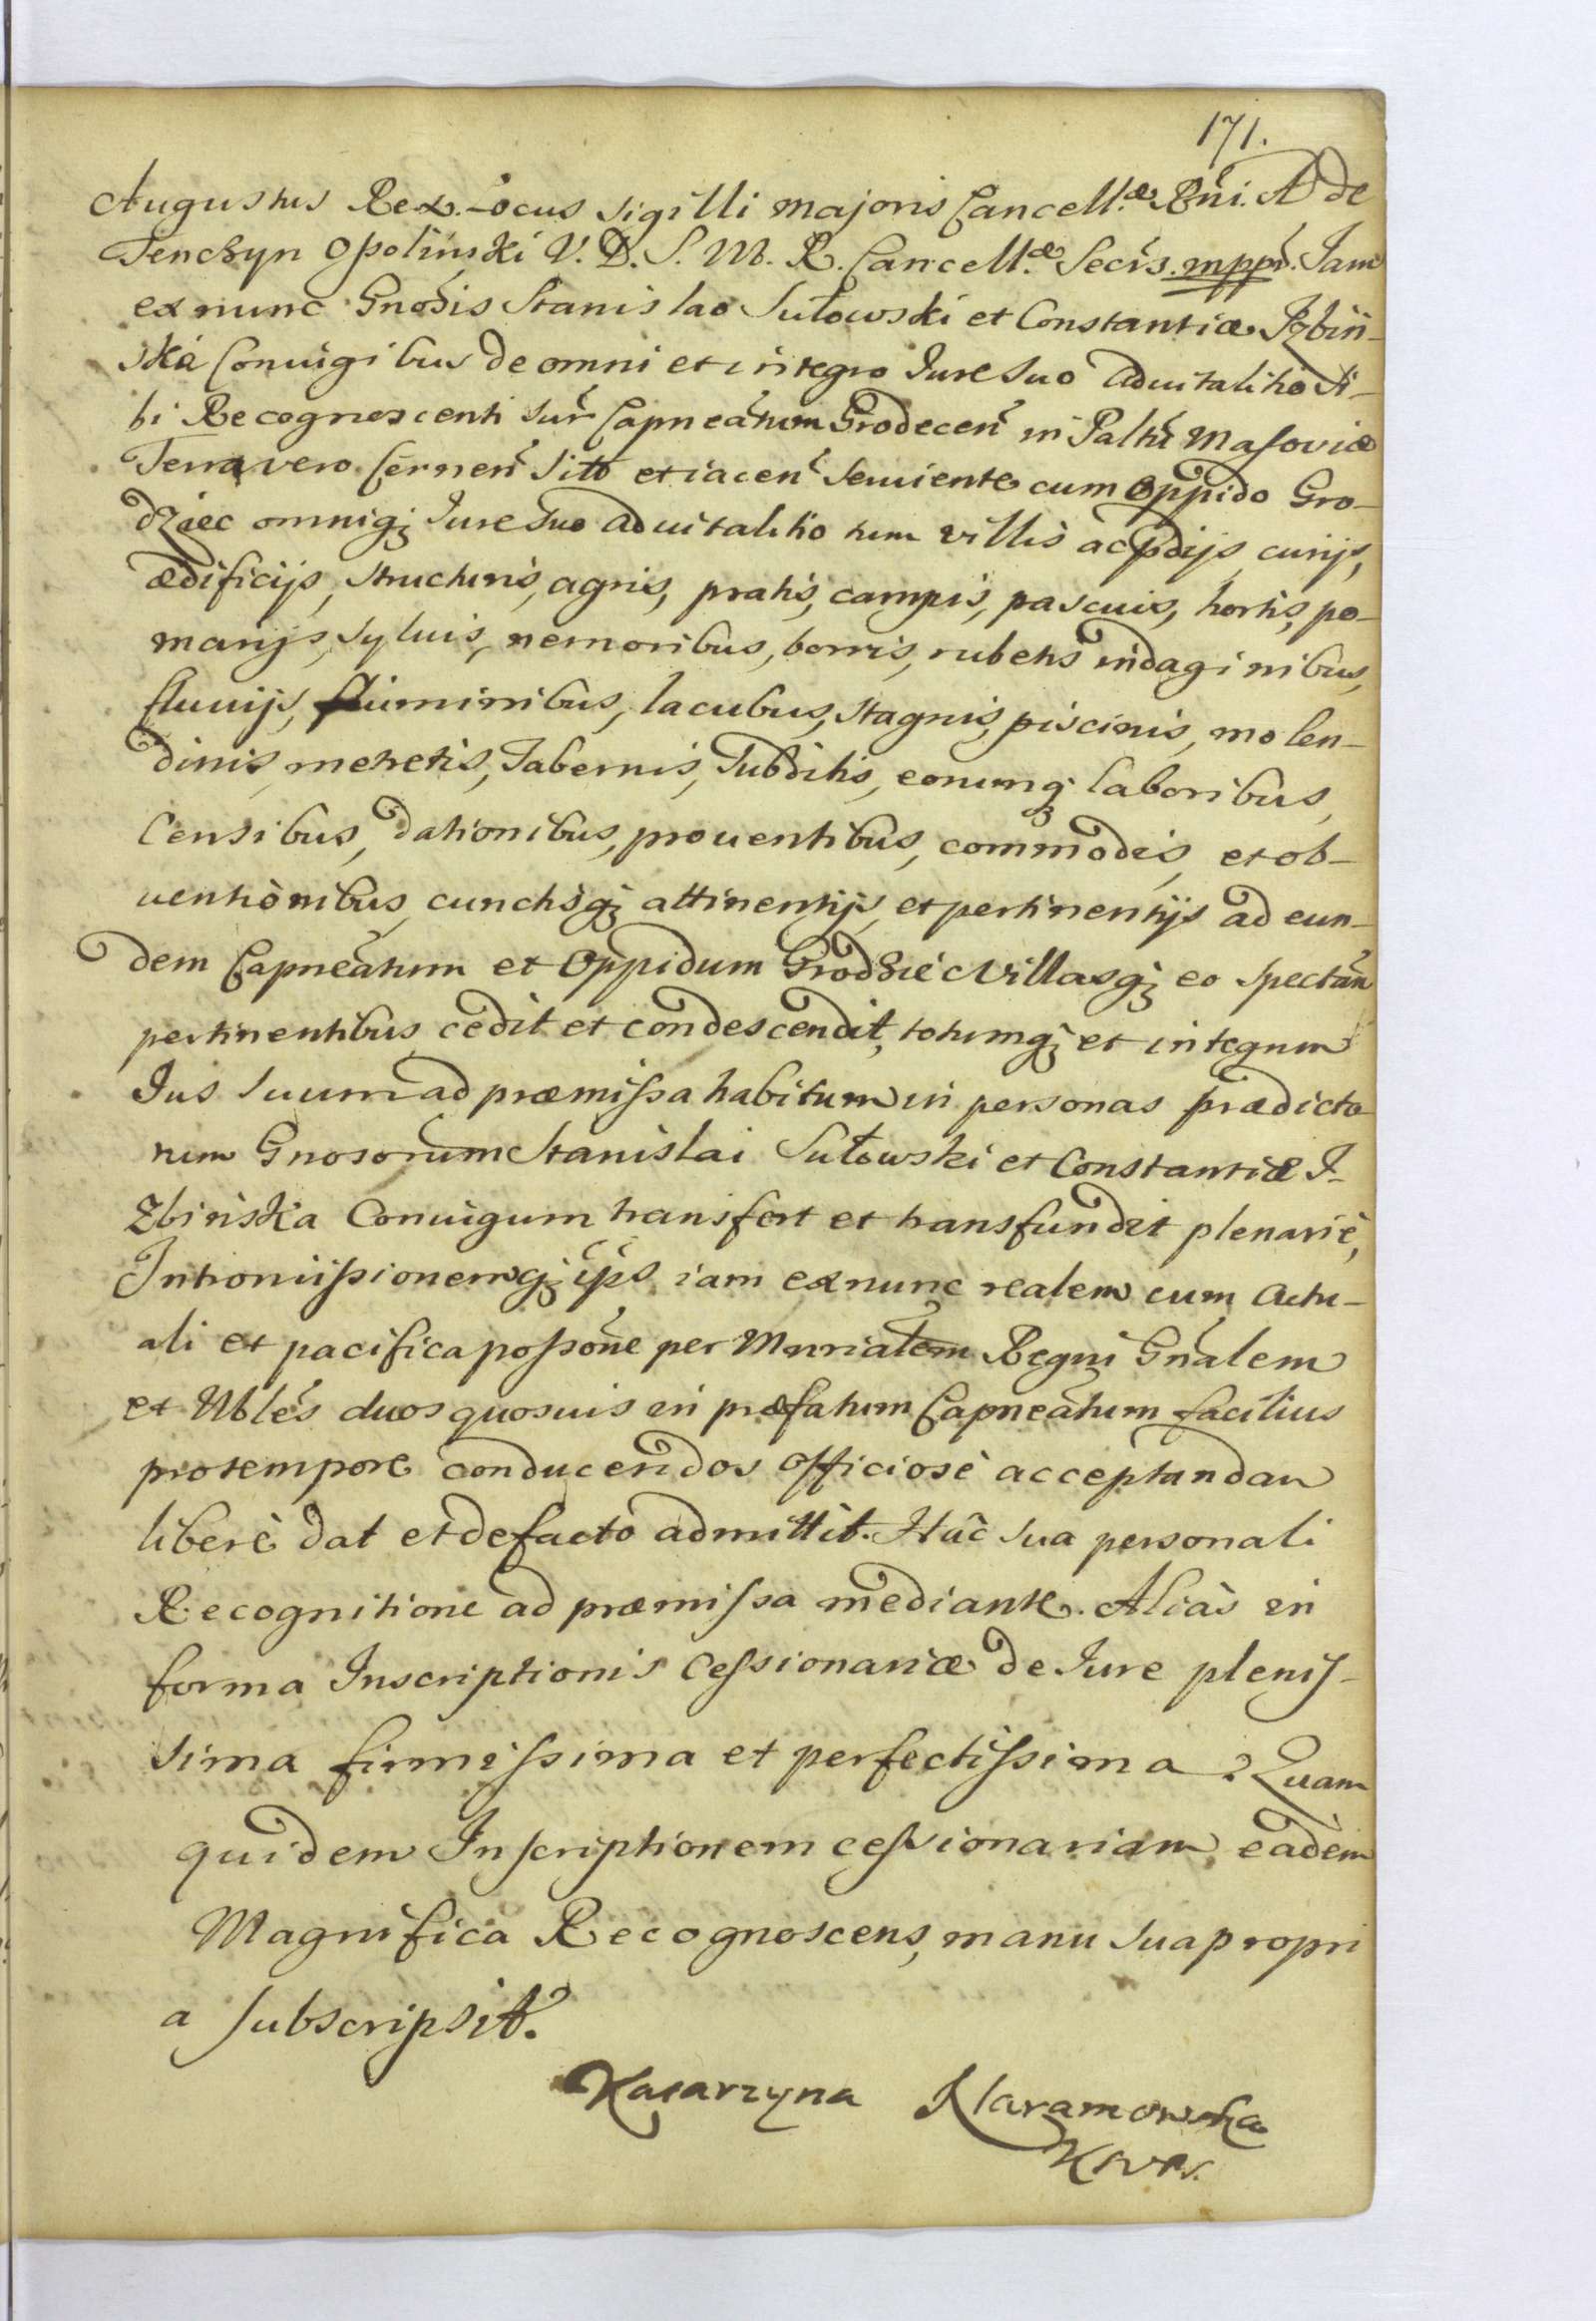 171.
Augustus Rex. Locus sigilli majoris Cancell.æ Rni. A de
Tenczyn Opolinski V. D. S. M. R. Cancell.æ Secrs. mpp. Iam
ex nunc Gnosis Stanislao Sułowski et Constantiæ Izbin-
ska Coniugibus de omni et integro Iure suo aduitalitio si-
bi Recognoscenti sur Capneatum Grodecen in Paltu Masoviæ
Terra vero Cernen sito et iacen seruiente cum Oppido Gro-
dziec omniq; Iure suo aduitalitio tum villis ac pdijs, curijs,
ædificijs, structuris, agris, pratis, campis, pascuis, hortis, po-
marijs, syluis, nemoribus, borris, rubetis indaginibus,
fluuijs, fluminibus, lacubus, stagnis, piscinis, molen-
dinis, metretis, Tabernis, Subditis, eorumq; laboribus,
Censibus, dationibus, prouentibus, commodis, et ob-
uentionibus, cunctisq; attinentijs, et pertinentijs ad eun-
dem Capneatum et Oppidum Grodziec Villasq; eo spectan
pertinentibus cedit et condescendit, totumq; et integrum
Ius suum ad præmissa habitum in personas prædicto
rum Gnosorum Stanislai Sułowski et Constantiæ I-
zbinska Coniugum transfert et transfundit plenariè,
Intromissionemq; ips iam ex nunc realem cum actu-
ali et pacifica possone per Mnrialem Regni Gnalem
et Nbles duos quosuis in præfatum Capneatum facilius
pro tempore conducendos officiosè acceptandam
liberè dat et de facto admittit. Hac sua personali
Recognitione ad præmissa mediante. Aliàs in
forma Inscriptionis Cessionariæ de Iure plenis-
sima firmissima et perfectissima. Quam
quidem Inscriptionem cessionariam eadem
Magnifica Recognoscens, manu sua propri
a subscripsit.
Katarzyna Naramowska